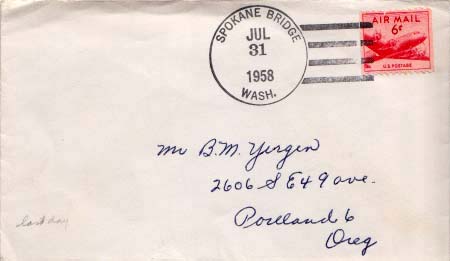 SPOKANE BRIDGE
JUL
31
1958
WASH.
AIR MAIL
6¢
U.S. POSTAGE
Mr B.M. Yergen
2606 S E 49 ave.
Portland 6
Oreg
last day